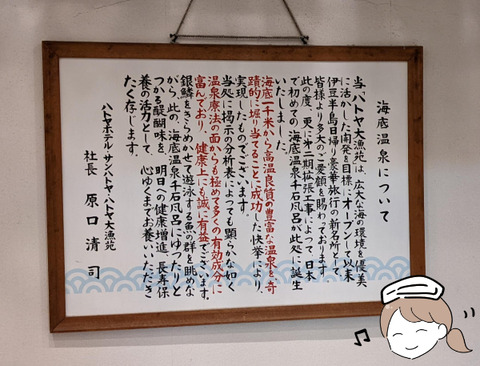 海底温泉について
当、「ハトヤ大漁苑」は、広大な海の環境を優美
に活かした開発を目標にオープンして以来
伊豆半島日帰り豪華旅行の新名所として、
皆様より多大のご愛顧を賜わっております。
此の度、更に第二期拡張工事によって、日本
で初めての、海底温泉千石風呂が此処に誕生
いたしました。
海底一千米から高温良質の豊富な温泉を、奇
蹟的に掘り当てることに成功した快挙により、
実現したものでございます。
当処に掲示の分析表によっても顕らかな如く
温泉療法の面からも極めて多くの有効成分に
富んでおり、健康上にも誠に有益でございます。
銀鱗をきらめかせて遊泳する魚の群を眺めな
がら、此の、海底温泉千石風呂にゆったりと
つかる醍醐味を、明日への健康増進、長寿保
養の活力として、心ゆくまでお養いいただき
たく存じます。
ハトヤホテル・サンハトヤ・ハトヤ大漁苑
社長 原口清司